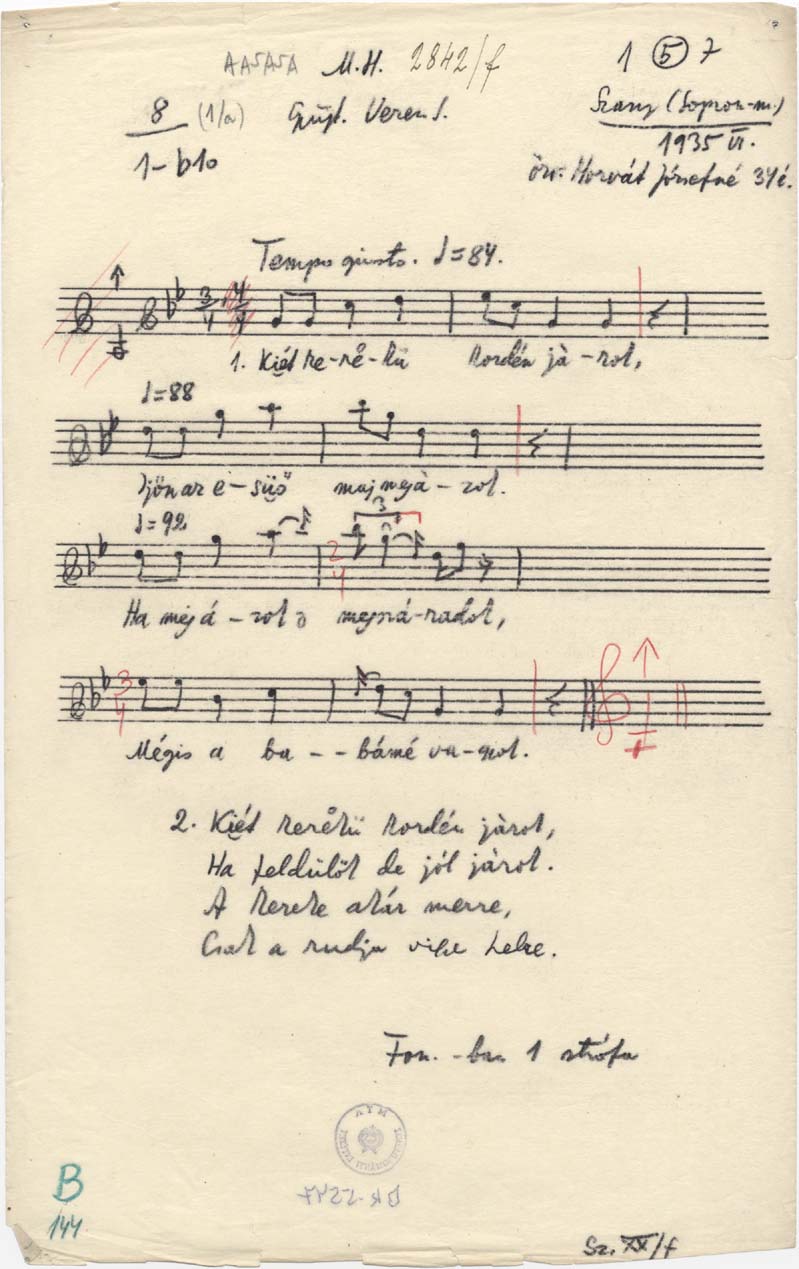 AA⁵A⁵A M.H. 2842/f 1 ⑤ 7
8 (1/a) Gyűjt. Veress S. Szany (Sopron-m.)
1-b10 1935 VI.
özv. Horvát Józsefné 34 é.
Tempo giusto. ♩=84.
3/4 4/4
1. Kiét ke-rê-kü kordén jà-rok,
♩=88
Jjön az e-süő maj mejá-zok.
♩=92
3
2/4
Ha mejá-zok is mejszá-radok,
3/4
Mégis a ba--bámé va-gyok.
2. Kiét kerêkü kordén jàrok,
Ha feldülök de jól jàrok.
A kereke akár merre,
Csak a rudja vigye helre.
Fon.-ban 1 strófa
B
144
Sz. XX/f